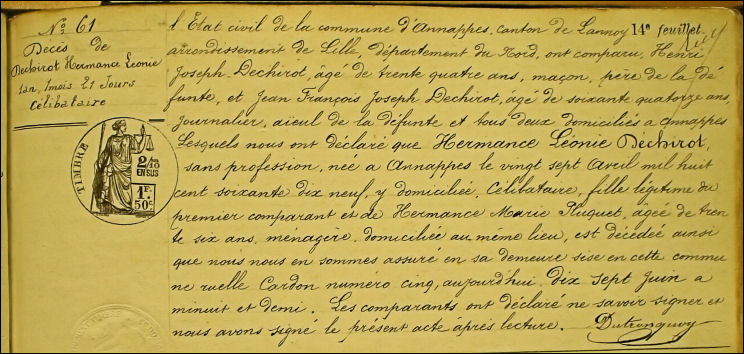 No 61
Décès de
Dechirot Hermance Léonie
1 an, 1 mois 21 Jours
Célibataire
TIMBRE
2/10
EN SUS
1F.
50c.
14e feuillet.
l'État civil de la commune d'Annappes, canton de Lannoy
arrondissement de Lille, département du Nord, ont comparu, Henri
Joseph Dechirot, âgé de trente quatre ans, maçon, père de la dé
funte, et Jean François Joseph Dechirot, âgé de soixante quatorze ans,
journalier, aïeul de la défunte et tous deux domiciliés a Annappes
Lesquels nous ont déclaré que Hermance Léonie Dechirot,
sans profession, née a Annappes le vingt sept Avril mil huit
cent soixante dix neuf, y domiciliée, Célibataire, fille légitime du
premier comparant et de Hermance Marie Pluquet, âgée de tren
te six ans, ménagère, domiciliée au même lieu, est décédée ainsi
que nous nous en sommes assuré en sa demeure sise en cette commu
ne ruelle Cardon numéro cinq, aujourd'hui dix sept Juin a
minuit et demi. Les comparants ont déclaré ne savoir signer et
nous avons signé le présent acte après lecture. Dutronquoy